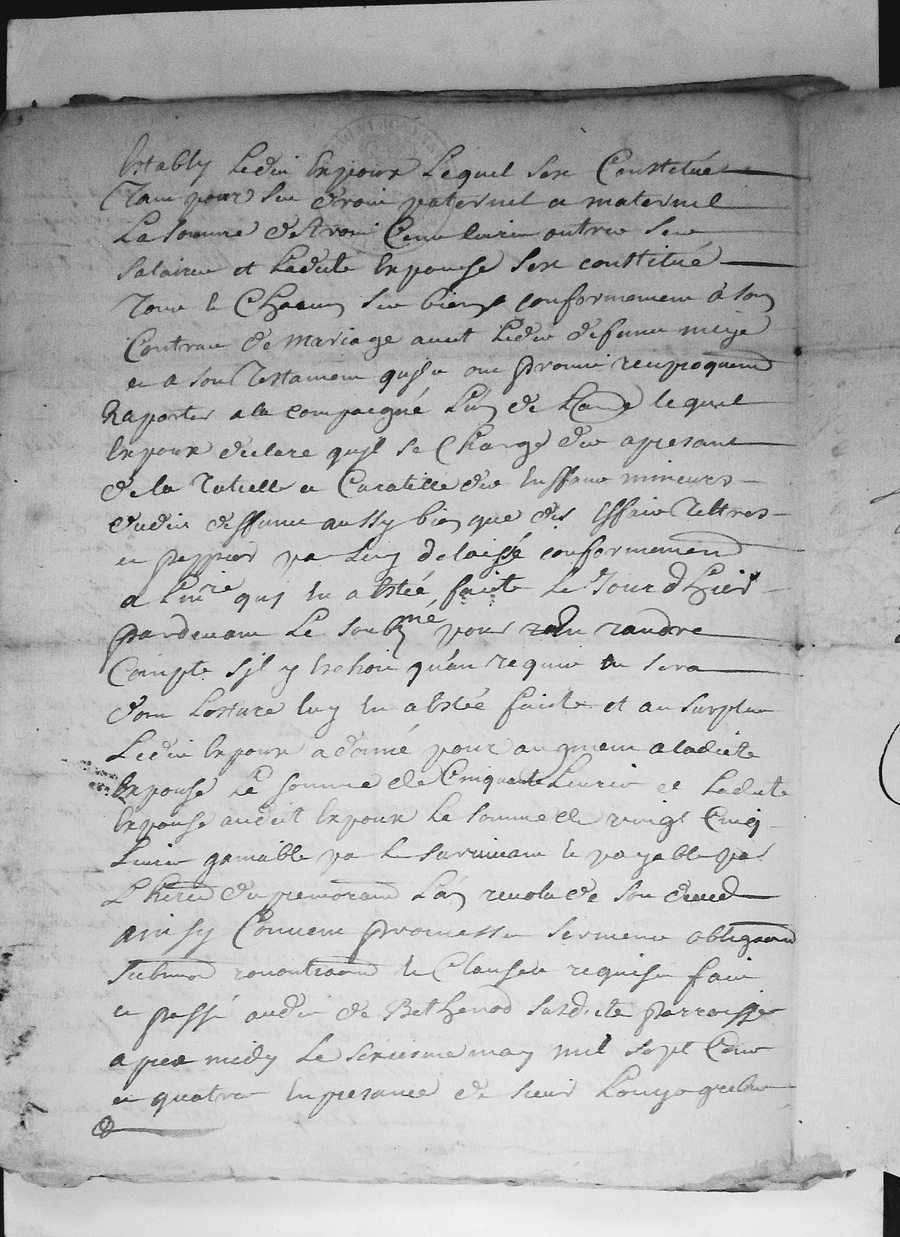 Estably Ledit Espoux Lequel se Constitue
Tant pour ses droits paternel et maternel
La somme de trois Cens livres outre ses
salaires et Ladite Espouse se constitue
Tous et Chacuns ses biens conformement à son
Contract de mariage avec Ledit deffunct
et a son Testament qu'ils ont promis reciproquement
Raporter a la compagnie L'un de L'autre lequel
Espoux declare qu'il se Charge des a presant
de la Tutelle et Curatelle des Enffans mineurs
dudit deffunct aussy bien que des Effaits Tiltres
et pappiers par Luy delaissé conformement
a L'inre quy en a Esté faicte Le Jour d'Hier
pardevant Le soubné pour randre
Compte s'il y Eschoit qu'an requis en sera
dont Lecture luy en a Estée faicte et au surplus
Ledit Espoux a donné pour augment a ladicte
Espouse La somme de Cinquante Livres et Ladite
Espouse audit Espoux La somme de vingt Cinq
Livres ganiable par Le survivant et payable par
L'heritier du premorant L'an revolu de son deced
ainsy Convenu promesses serments obligations
submissions renontiations et Clauses requises fait
et passé audit de Bethenod susdicte parroisse
apres midy Le seiziesme may mil sept Cens
et quatre En presance de sieur Louys